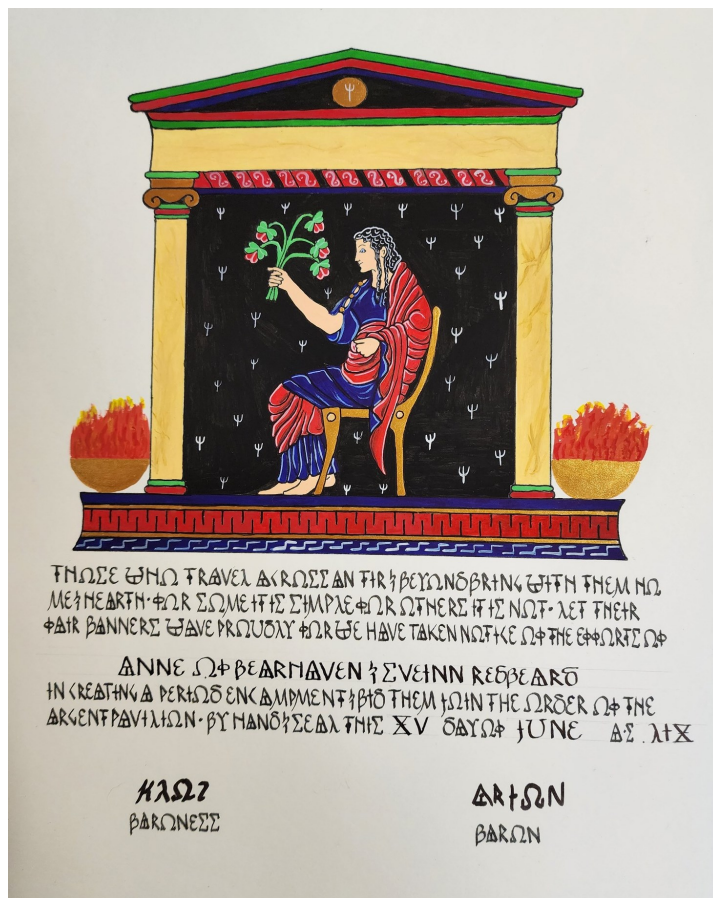 THOSE WHO TRAVEL ACROSS AN TIR & BEYOND BRING WITH THEM HO
ME & HEARTH · FOR SOME IT IS SIMPLE FOR OTHERS IT IS NOT · LET THEIR
FAIR BANNERS WAVE PROUDLY FOR WE HAVE TAKEN NOTICE OF THE EFFORTS OF
ANNE OF BEARHAVEN & SVEINN REDBEARD
IN CREATING A PERIOD ENCAMPMENT & BID THEM JOIN THE ORDER OF THE
ARGENT PAVILION · BY HAND & SEAL THIS XV DAY OF JUNE A.S. LIX
ARION
BARONESS
BARON